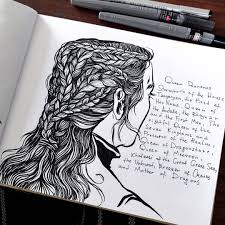 Queen Daenerys
Stormborn of the House
Targaryen, the First of
Her Name, Queen of
the Andals, the Rhoynar
and the First Men, The
rightful Queen of the
Seven Kingdoms and
Protector of the Realm,
Queen of Dragonstone,
Queen of Meereen,
Khaleesi of the Great Grass Sea,
the Unburnt, Breaker of Chains
and Mother of Dragons